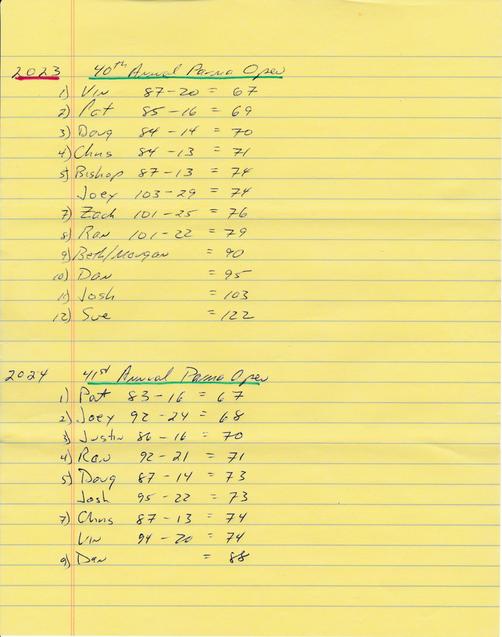 2023 40th Annual Parma Open
1) Vin 87-20 = 67
2) Pat 85-16 = 69
3) Doug 84-14 = 70
4) Chris 84-13 = 71
5) Bishop 87-13 = 74
Joey 103-29 = 74
7) Zach 101-25 = 76
8) Ron 101-22 = 79
9) Beth/Morgan = 90
10) Dan = 95
11) Josh = 103
12) Sue = 122
2024 41st Annual Parma Open
1) Pat 83-16 = 67
2) Joey 92-24 = 68
3) Justin 86-16 = 70
4) Ron 92-21 = 71
5) Doug 87-14 = 73
Josh 95-22 = 73
7) Chris 87-13 = 74
Vin 94-20 = 74
9) Dan = 88